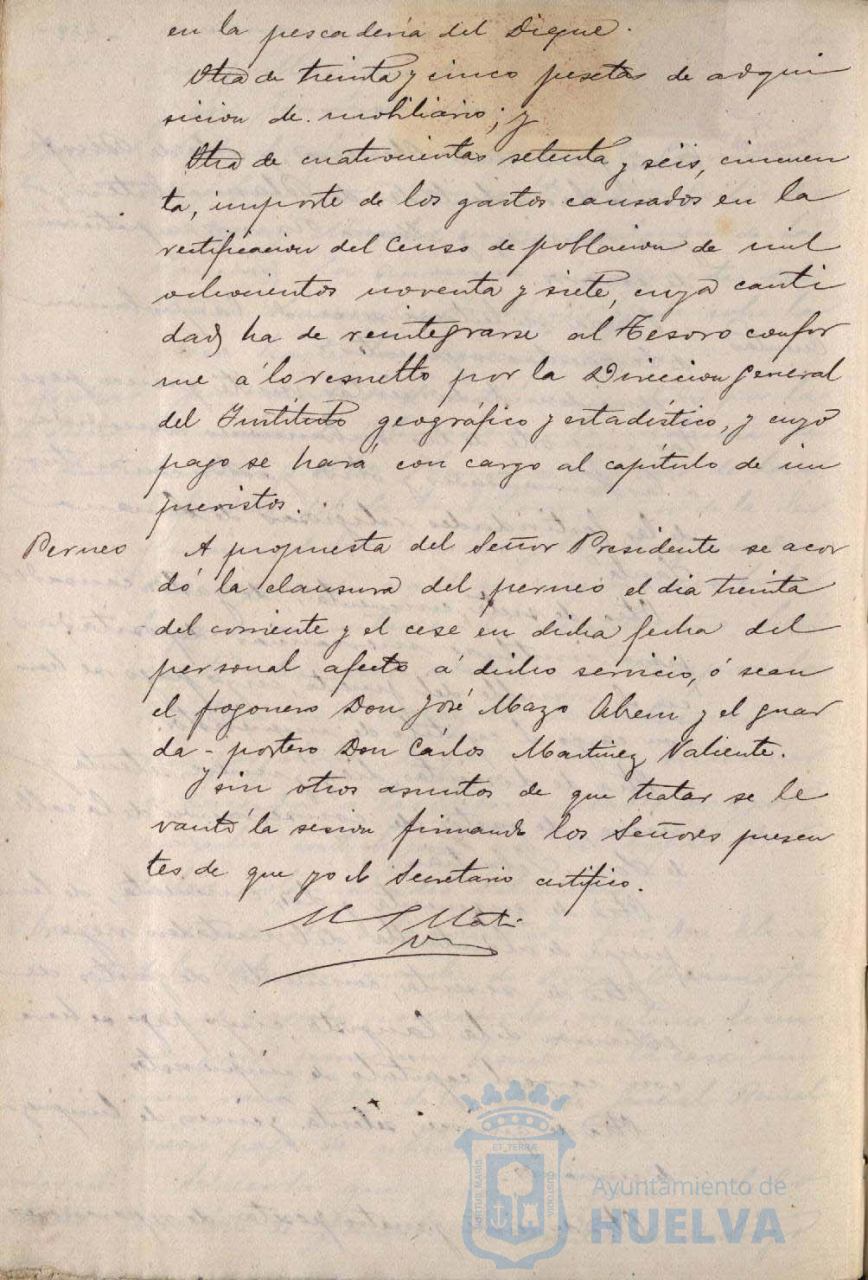 en la pescadería del Dique.
Otra de treinta y cinco pesetas de adqui
sicion de mobiliario; y
Otra de cuatrocientas setenta y seis, cincuen
ta, importe de los gastos causados en la
rectificacion del Censo de poblacion de mil
ochocientos noventa y siete, cuya canti
dad ha de reintegrarse al Tesoro confor
me á lo resuelto por la Direccion General
del Instituto geográfico y estadístico, y cuyo
pago se hará con cargo al capítulo de im
previstos.
Perneo A propuesta del Señor Presidente se acor
dó la clausura del perneo el dia treinta
del corriente y el cese en dicha fecha del
personal afecto á dicho servicio, ó sean
el fogonero Don José Mazo y el guar
da-portero Don Cárlos Martinez Valiente.
Y sin otros asuntos de que tratar se le
vantó la sesion firmando los Señores presen
tes, de que yo el Secretario certifico.
ET TERRAE
PORTUS MARIS
CUSTODIA
Ayuntamiento de
HUELVA